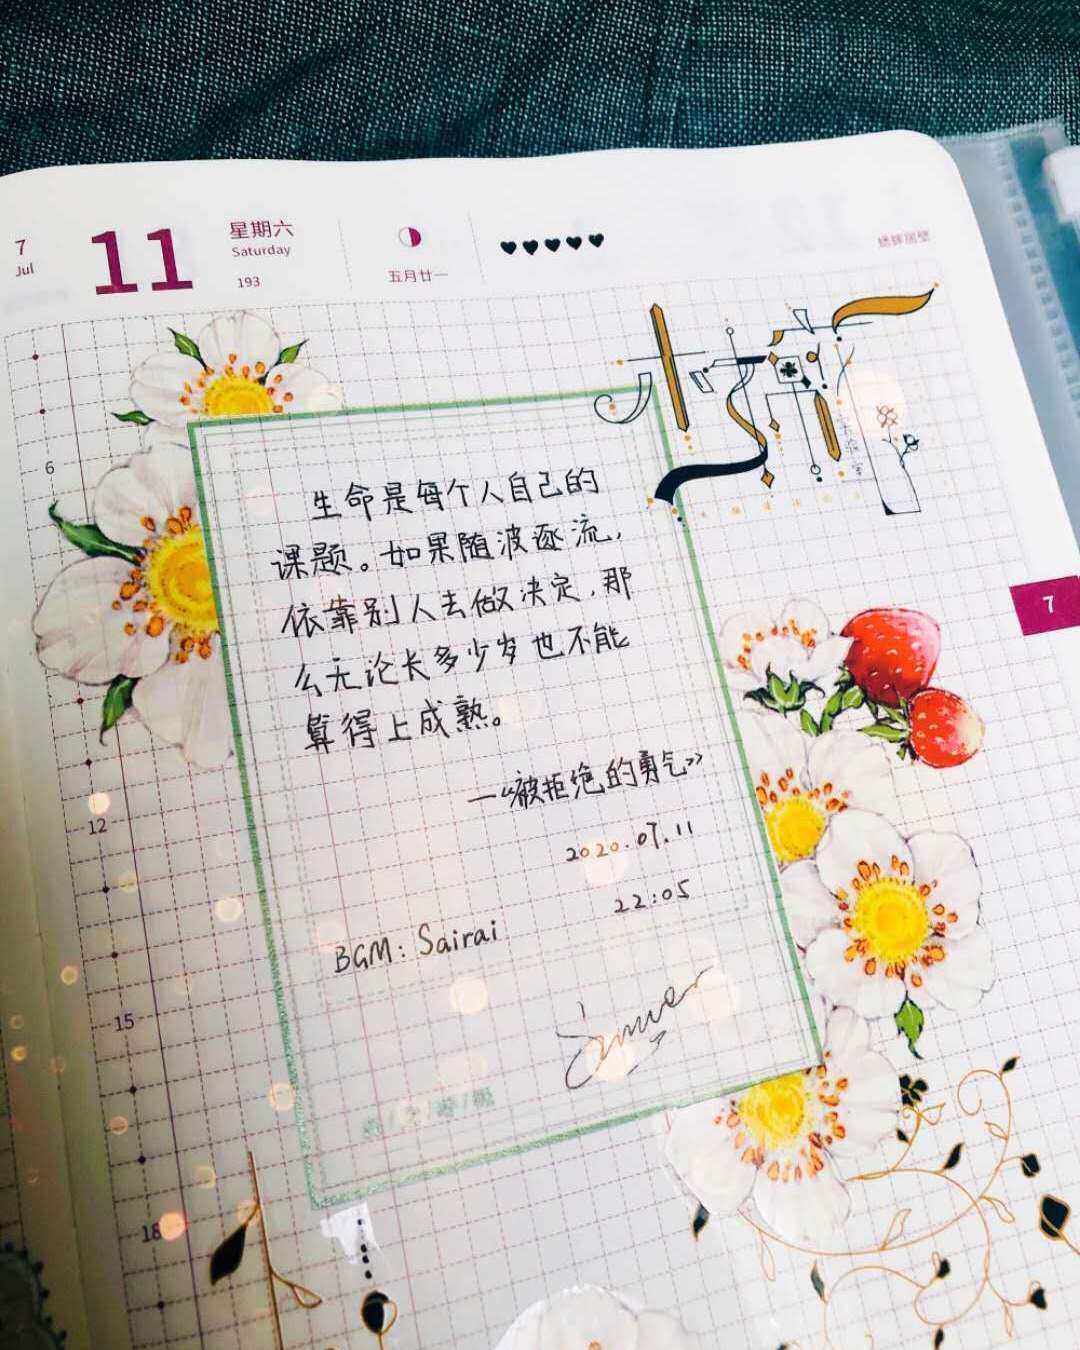 7
Jul
11
星期六
Saturday
193
五月廿一
蟋蟀居壁
7
6
12
15
18
生命是每个人自己的
课题。如果随波逐流,
依靠别人去做决定,那
么无论长多少岁也不能
算得上成熟。
—《被拒绝的勇气》
2020.07.11
22:05
BGM: Sairai